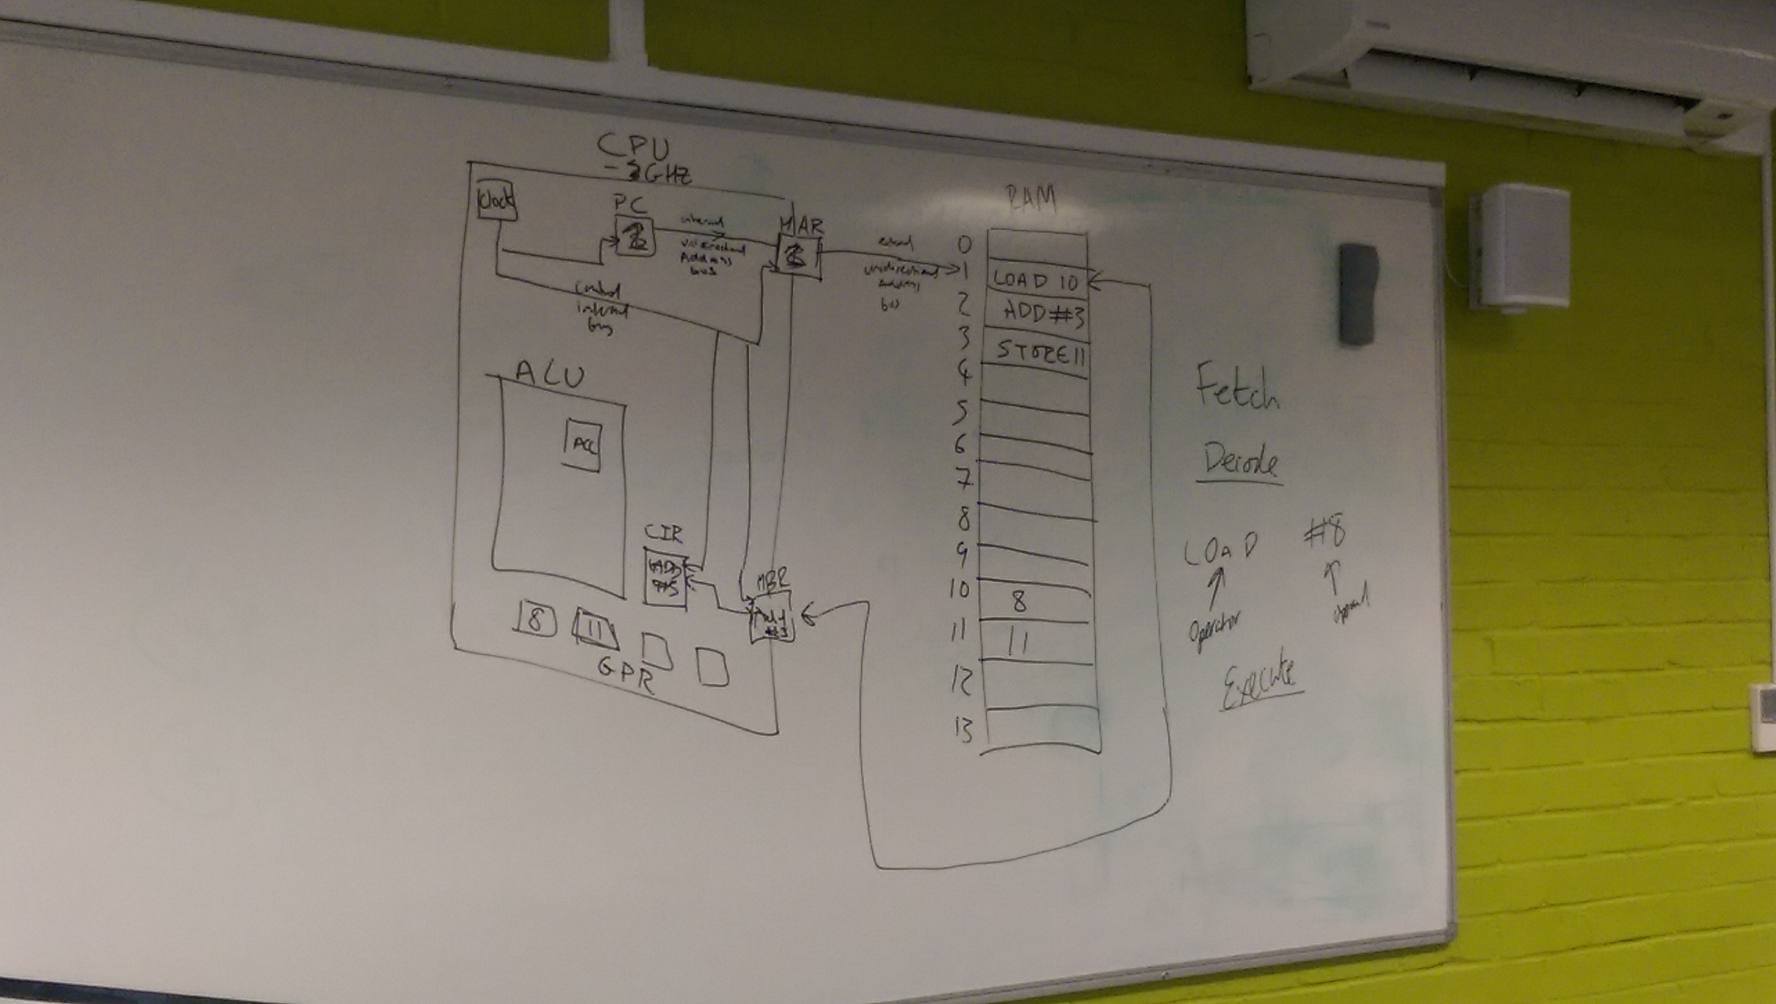 CPU
GHz
Clock
PC
MAR
internal
Address
bus
external
unidirectional
Address
bus
control
internal
bus
ALU
ACC
CIR
ADD
#3
MBR
#3
8
11
GPR
RAM
0
1 LOAD 10
2 ADD #3
3 STORE 11
4
5
6
7
8
9
10 8
11 11
12
13
Fetch
Decode
LOAD #8
operator
Execute